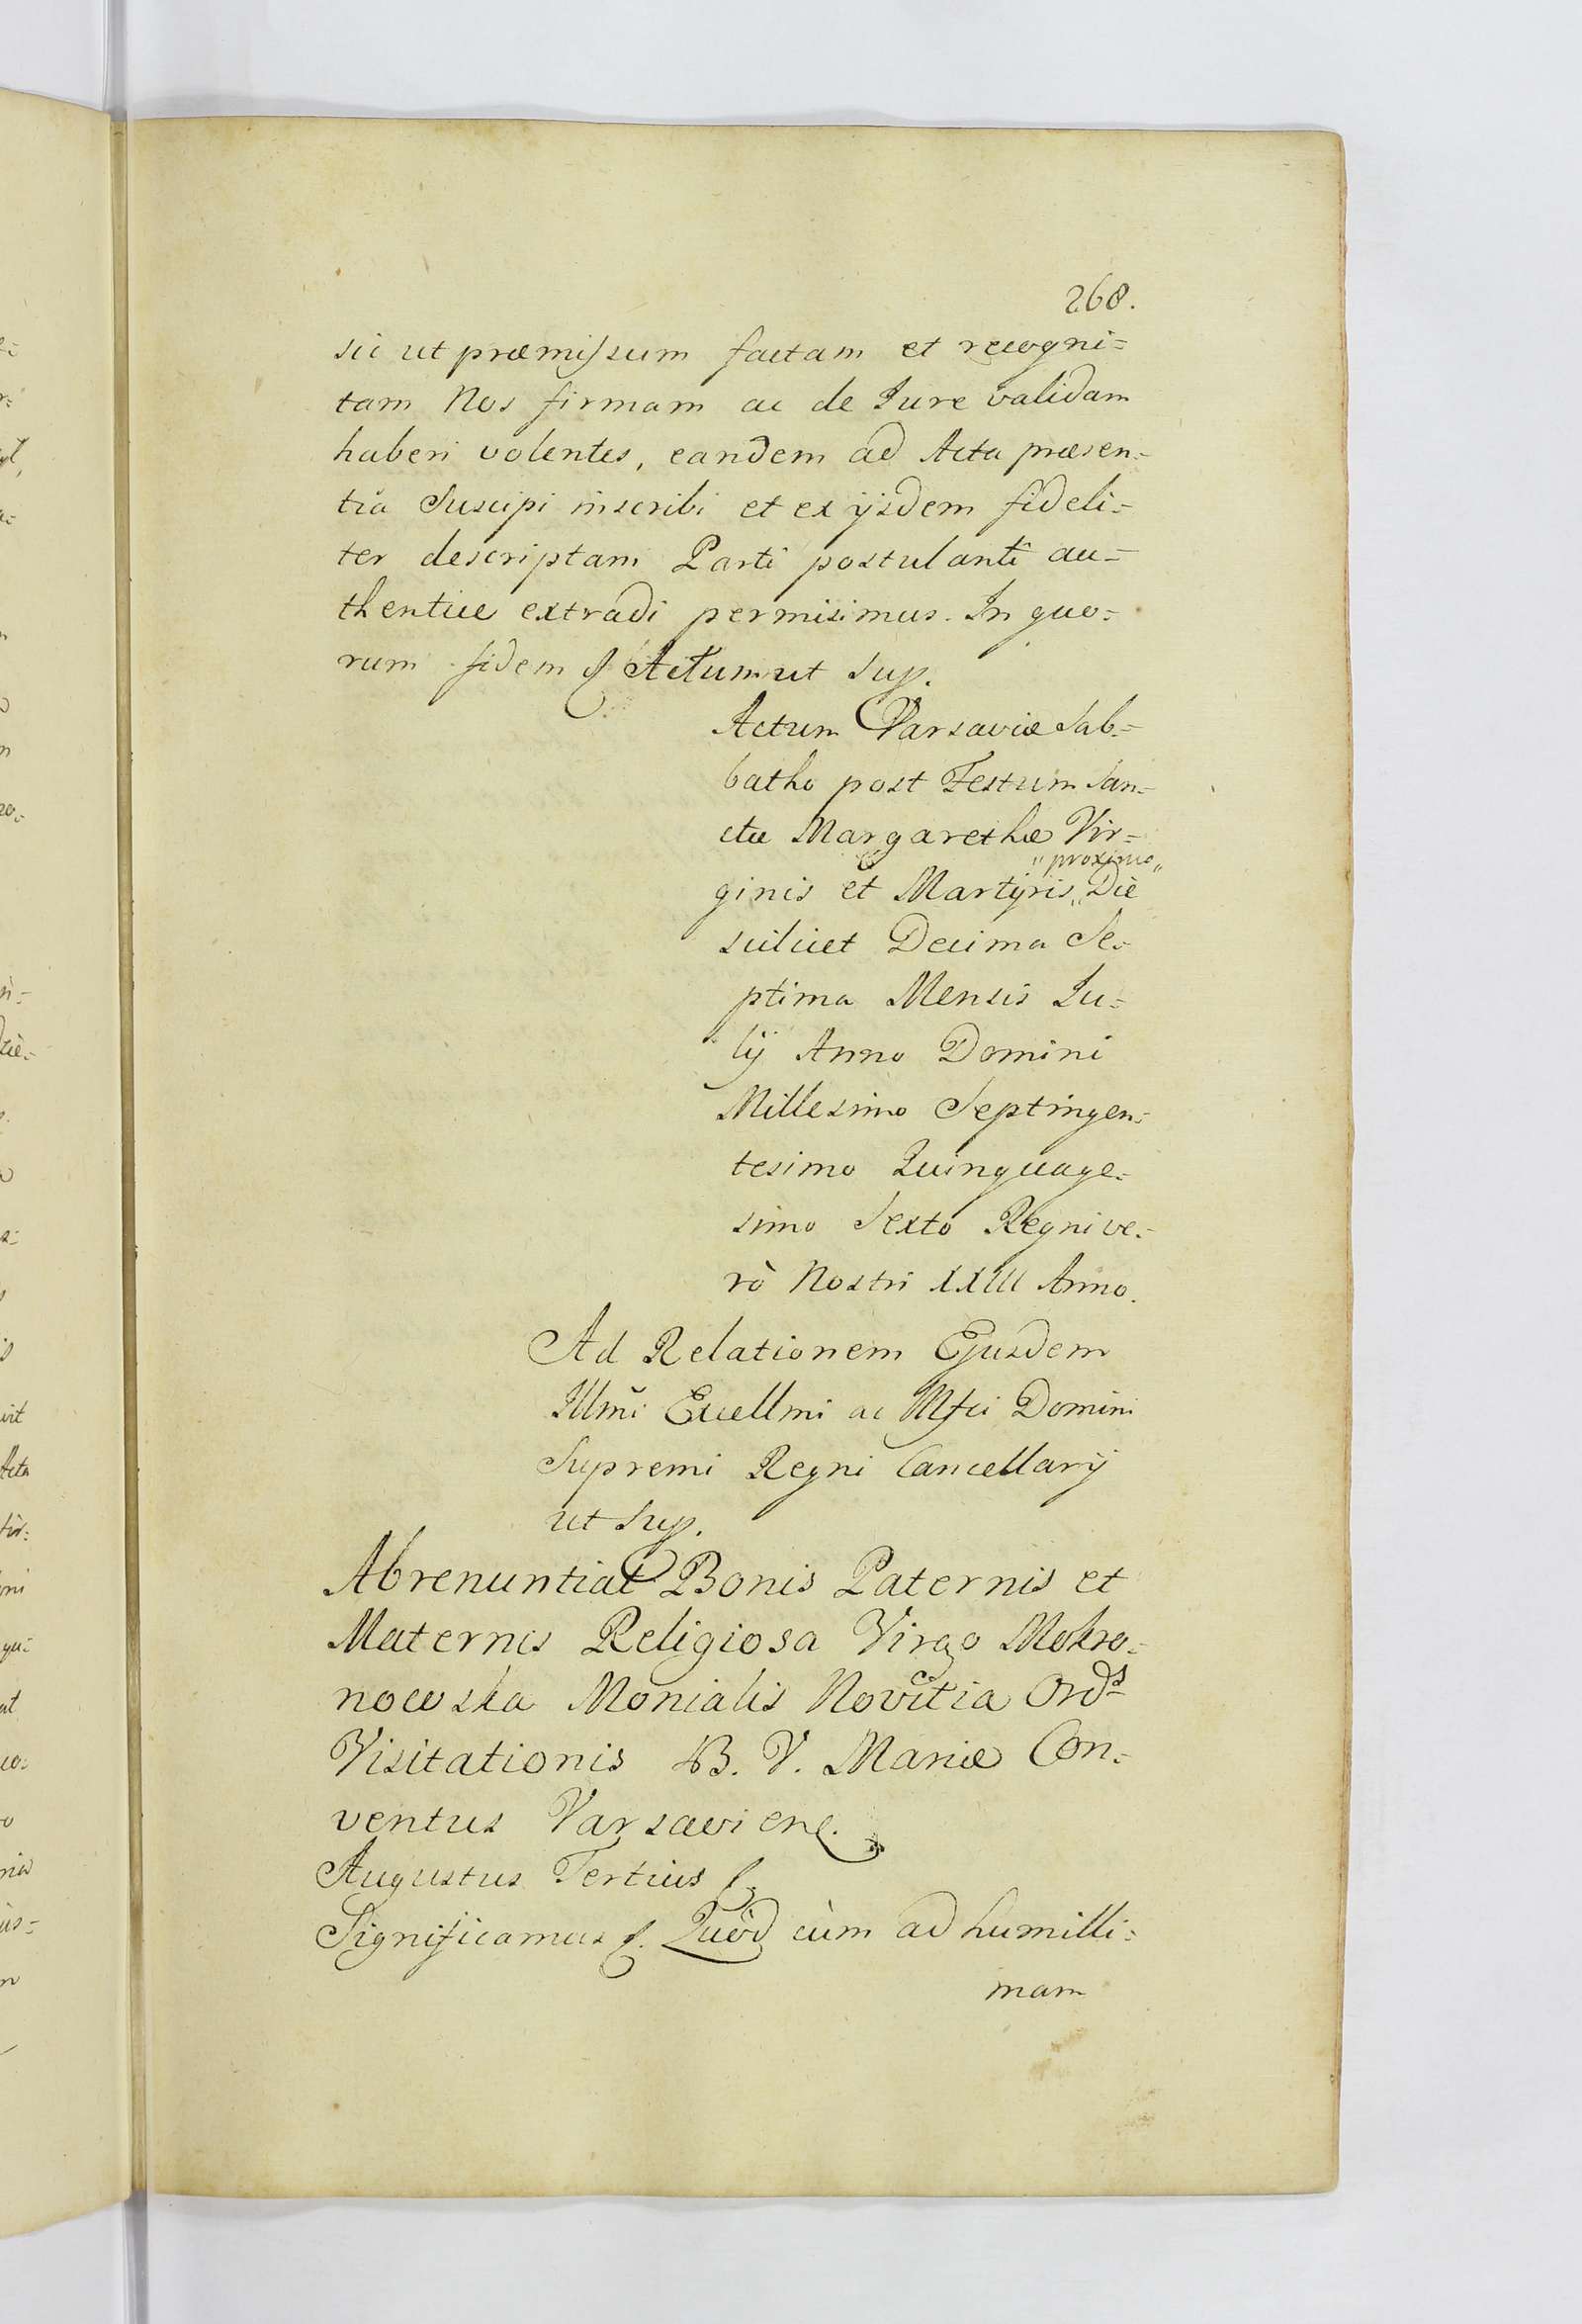 268.
sic ut præmissum factam et recogni=
tam Nos firmam ac de Jure validam
haberi volentes, eandem ad Acta præsen=
tia Suscipi inscribi et ex ijsdem fideli=
ter descriptam Parti postulanti au=
thentice extradi permisimus. In quo=
rum fidem & Actum ut Sup.
Actum Varsaviæ Sab=
batho post Festum San=
ctæ Margarethæ Vir=
"proximo"
ginis et Martyris,, Die
scilicet Decima Se=
ptima Mensis Ju=
lij Anno Domini
Millesimo Septingen=
tesimo Quinquage=
simo Sexto Regni ve=
rò Nostri XXIII Anno.
Ad Relationem Ejusdem
Illmi Excellmi ac Mfci Domini
Supremi Regni Cancellarij
ut Sup.
Abrenuntiat Bonis Paternis et
Maternis Religiosa Virgo Mokro=
nowska Monialis Novitia Ords
Visitationis B. V. Mariæ Con=
ventus Varsavien.
Augustus Tertius &
Significamus &. Quòd cùm ad humilli=
mam